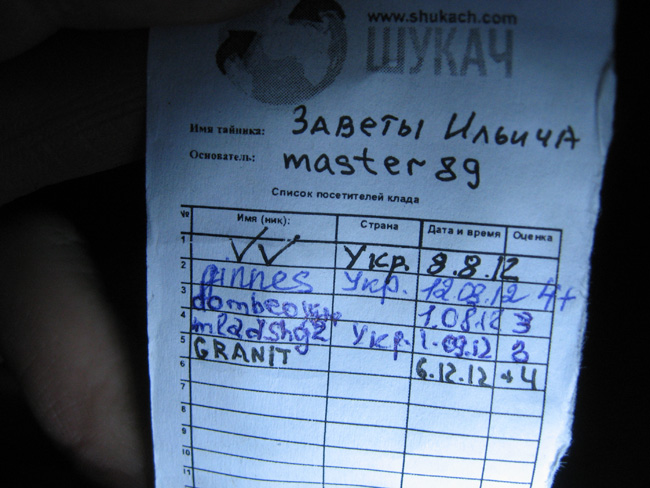 www.shukach.com
ШУКАЧ
Имя тайника: Заветы Ильича
Основатель: master 89
Список посетителей клада
№ Имя (ник): Страна Дата и время Оценка
1 VV Укр. 8.8.12
2 pinnes Укр. 12.08.12 4+
3 1.08.12 3
4 mladshg2 Укр. 1.09.12 3
5 GRANIT 6.12.12 +4
6
7
8
9
10
11